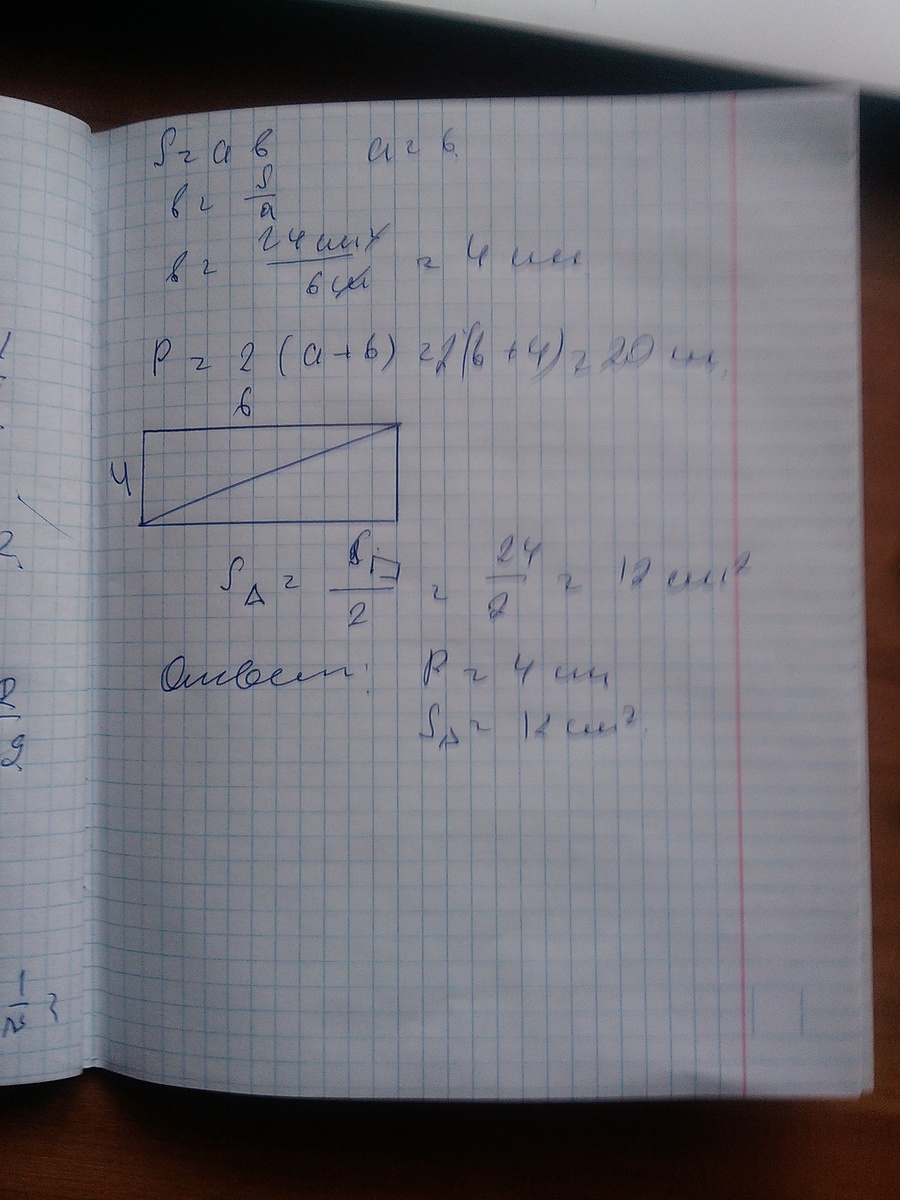 S = a в    a = 6
в = S/a
в = 24 см²/6 см = 4 см
P = 2 (a + b) = 2(6 + 4) = 20 см
6
4
S△ = S▭/2 = 24/2 = 12 см²
Ответ: P = 4 см
S△ = 12 см²
2
R/2
1